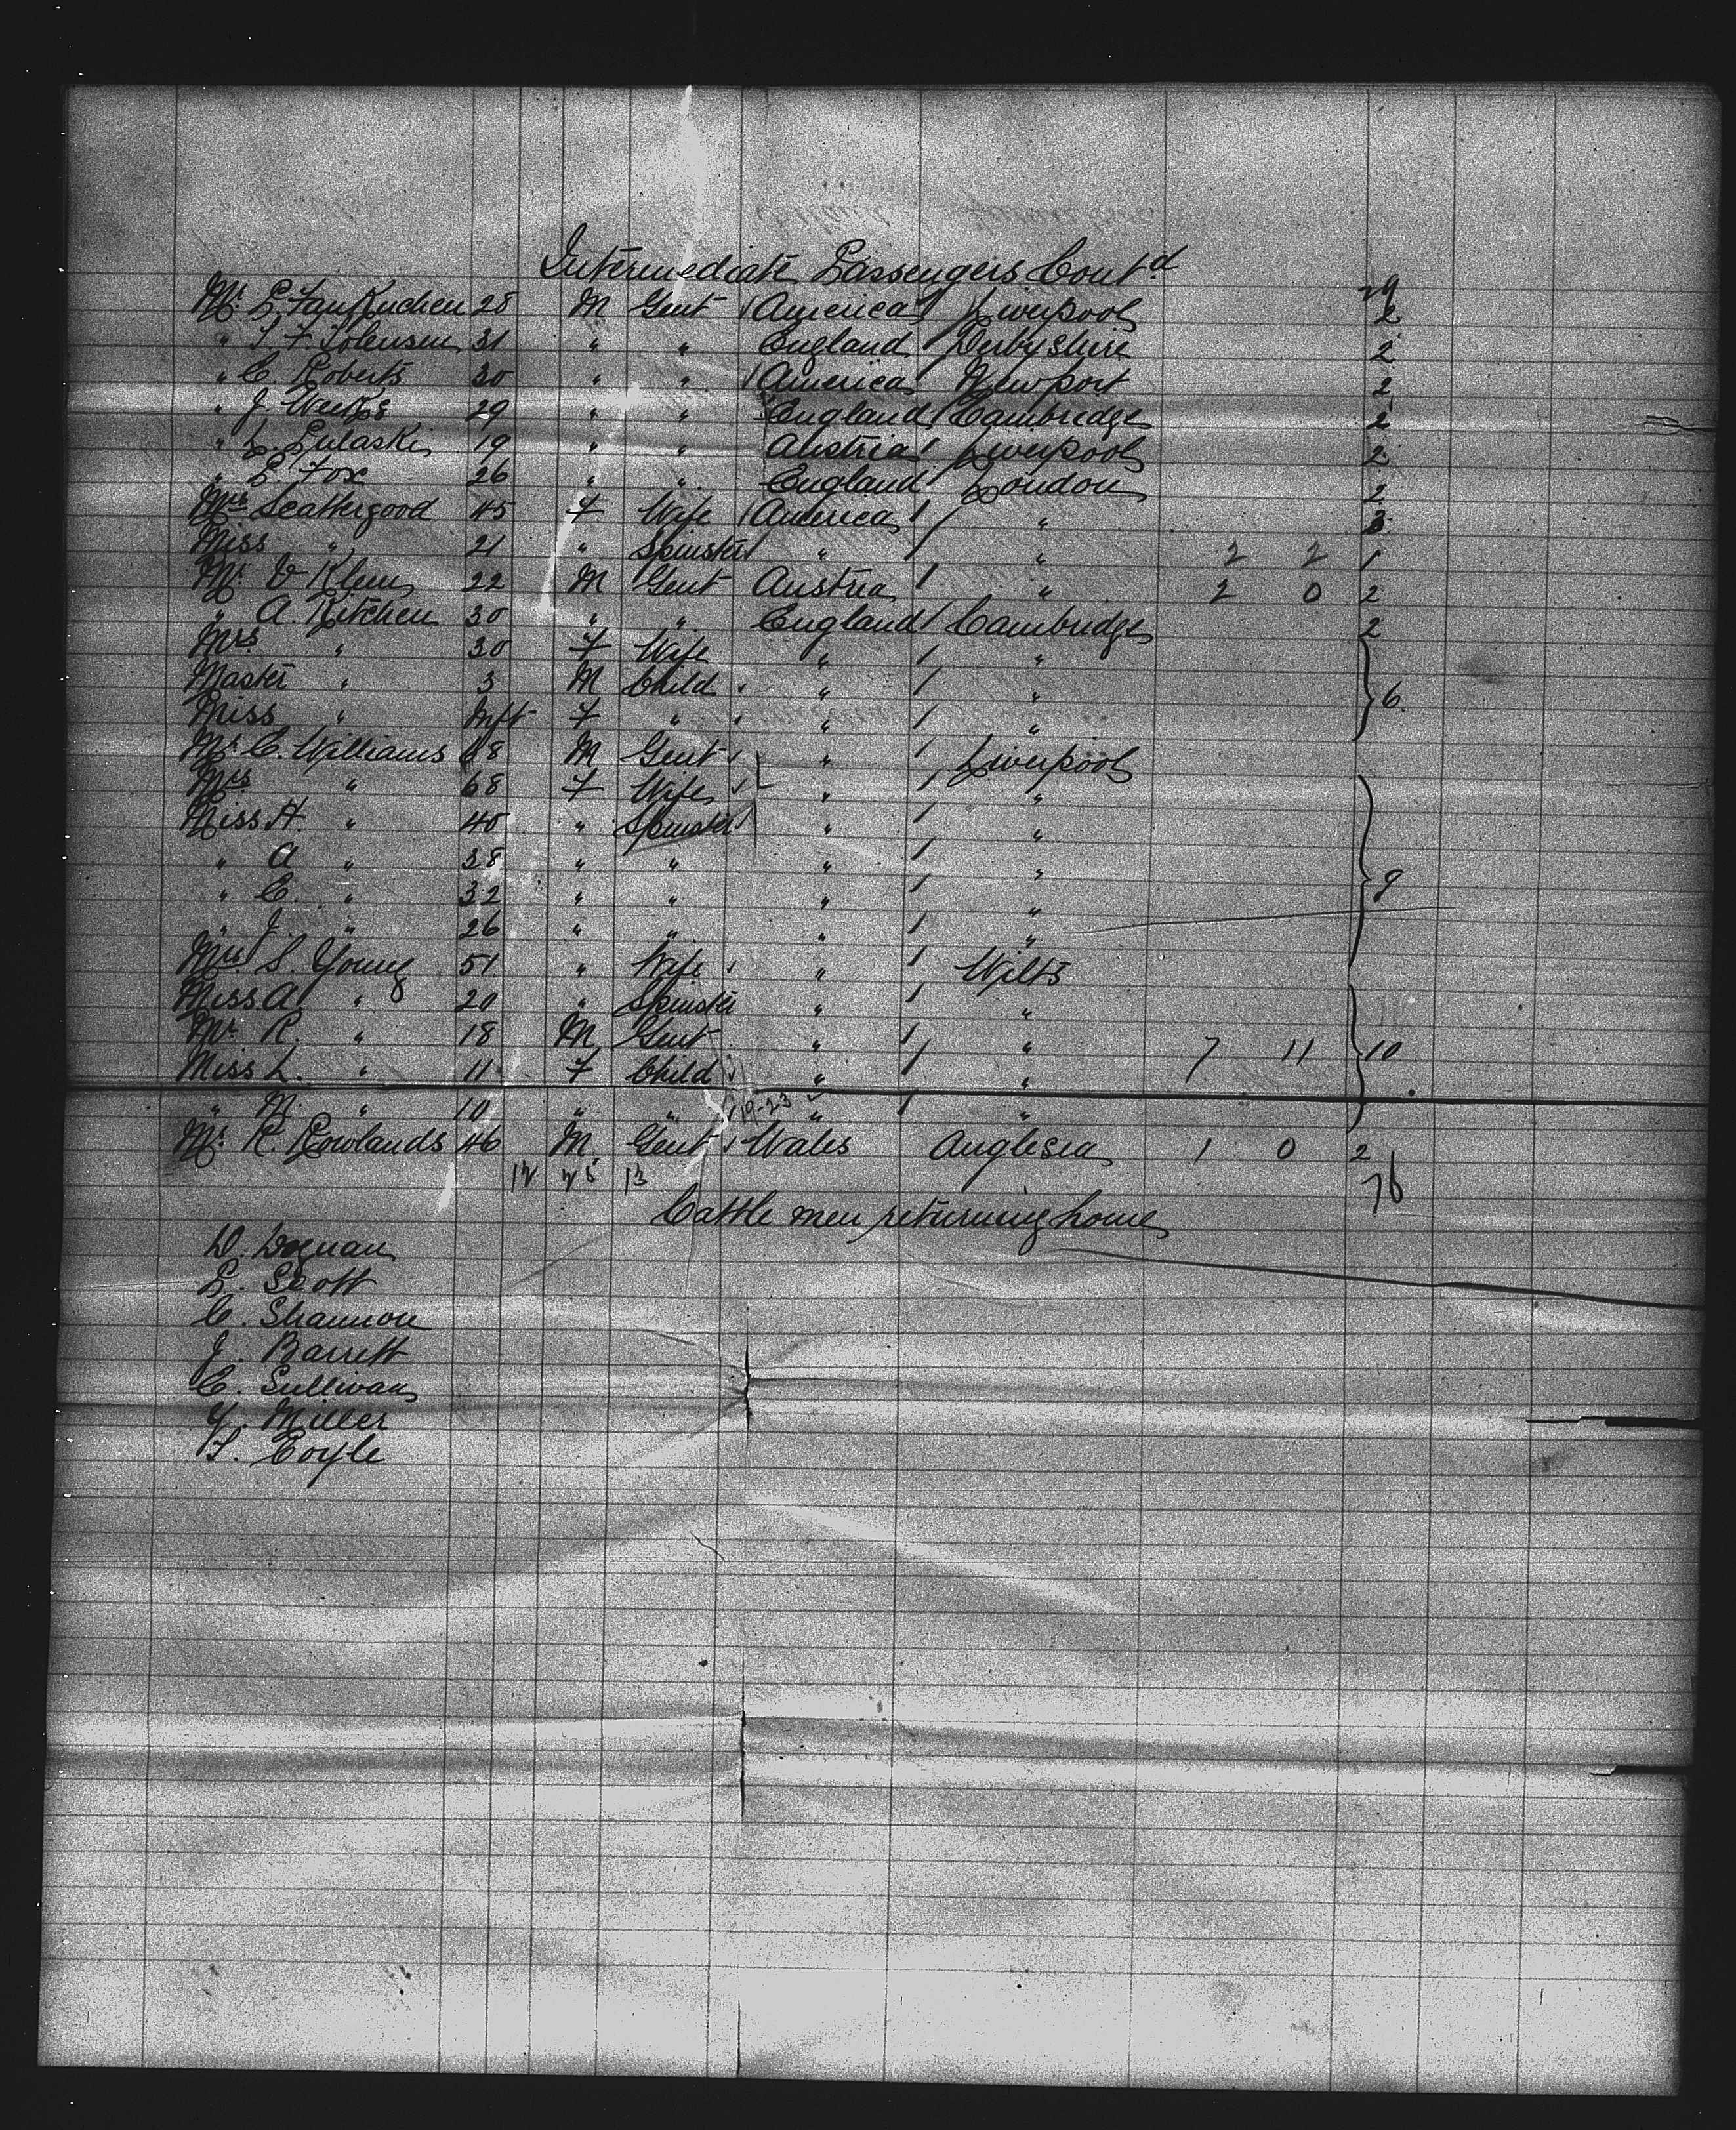 Intermediate Passengers Contd
29
Mr. E. Fankuchen 28 M Gent America Liverpool 2
" T. F. Sorensen 31 " " England Derbyshire 2
" C. Roberts 30 " " America Newport 2
" J. Weeks 29 " " England Cambridge 2
" L. Pulaski 19 " " Austria Liverpool 2
" E. Fox 26 " " England London 2
Mrs Scattergood 45 F Wife America " 3
Miss " 21 " Spinster " " 2 2 1
Mr. V Klein 22 M Gent Austria " 2 0 2
" A. Kitchen 30 " " England Cambridge 2
Mrs " 30 F Wife " "
Master " 3 M Child " " 6
Miss " Inft F " " "
Mr. C. Williams 68 M Gent " Liverpool
Mrs " 68 F Wife " "
Miss H. " 40 " Spinster " "
" A " 38 " " " "
" C. " 32 " " " " 9
" J. " 26 " " " "
Mrs S. Young 51 " Wife " Wilts
Miss A " 20 " Spinster " "
Mr. R. " 18 M Gent " "
Miss L. " 11 F Child " " 7 11 10
" M. " 10 " " 10-23 " "
Mr. R. Rowlands 46 M. Gent Wales Anglesea 1 0 2
12 25 13 76
Cattle men returning home
D.
E. Scott
C. Shannon
J. Barrett
C. Sullivan
Y. Miller
T. Coyle